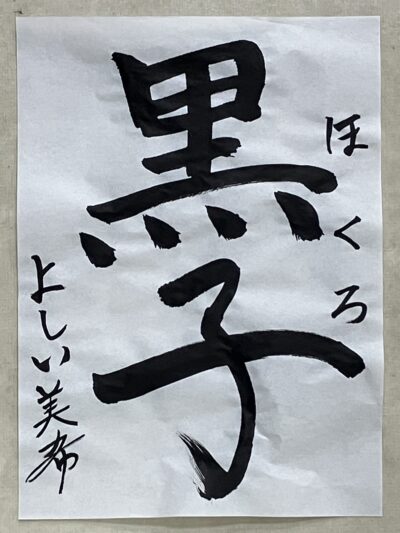 ほくろ
黒子
よしい美希